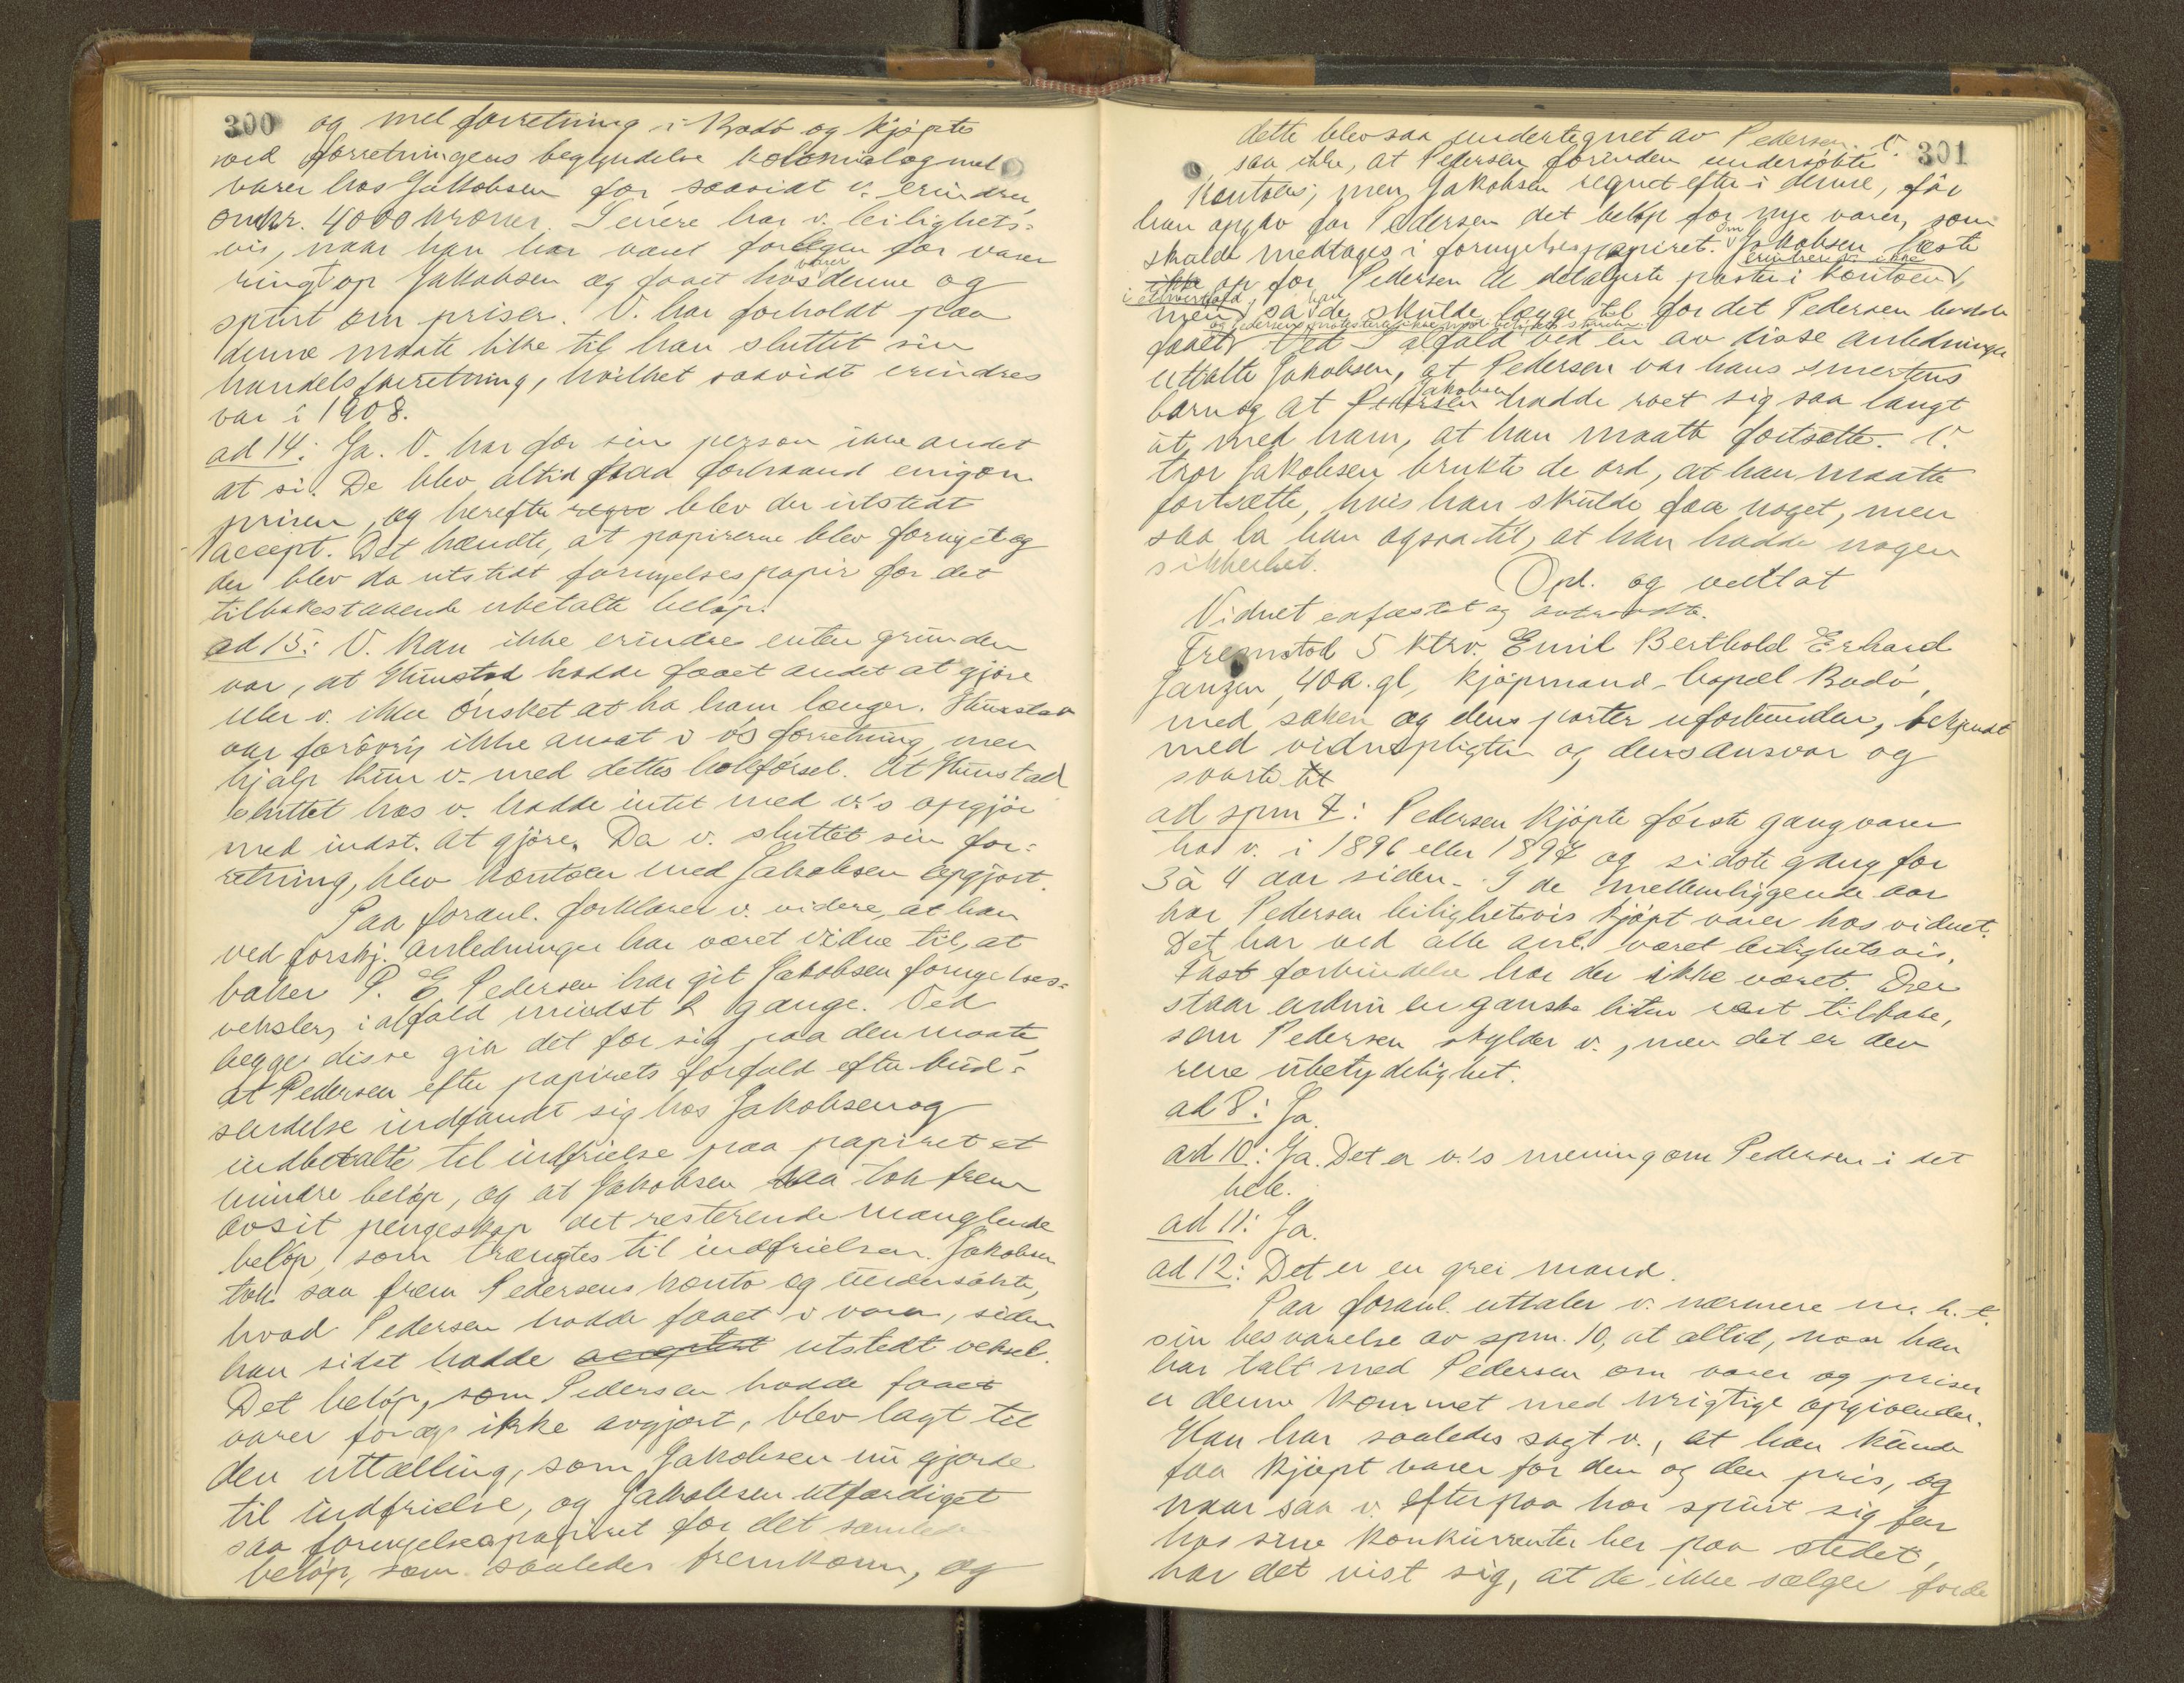 300
og mel forretning i Bodö og kjöpte
ved forretningens begyndelse kolonial og mel
varer hos Jakobsen for, saavidt v. erindrer,
omkr. 4000 kroner. Senere har v. leilighets-
vis, naar han har været forlegen for varer
ringt op Jakobsen og faaet varer hos denne og
spurt om priser. V. har forholdt paa
denne maate like til han sluttet sin
handelsforretning, hvilket saavidt erindres
var i 1908.
ad 14: Ja. V. har for sin person ikke andet
at si. De blev altid paa forhaand enig om
prisen, og herefter blev der utstedt
accept. Det hændte, at papirerne blev fornyet og
der blev da utstedt fornyelsespapir for det
tilbakestaaende ubetalte belöp.
ad 15: V. kan ikke erindre enten grunden
var, at Hunstad hadde faaet andet at gjöre
eller v. ikke önsket at ha ham længer. Hunstad
var forövrig ikke ansat i v's forretning, men
hjalp kun v. med dettes bokförsel. At Hunstad
sluttet hos v. hadde intet med v's opgjör
med indst. at gjöre. Da v. sluttet sin for-
retning, blev kontoen med Jakobsen opgjort.
Paa foranl. forklarer v. videre, at han
ved forskj. anledninger har været vidne til, at
baker P. E Pedersen har git Jakobsen fornyelses-
veksler, i alfald mindst 2 gange. Ved
begge disse gik det for sig paa den maate,
at Pedersen efter papirets forfald efter bud-
sendelse indfandt sig hos Jakobsen og
indbetalte til indfrielse paa papiret et
mindre belöp, og at Jakobsen saa tok frem
av sit pengeskap det resterende manglende
belöp, som trængtes til indfrielsen. Jakobsen
tok saa frem Pedersens konto og undersökte,
hvad Pedersen hadde faaet i varer, siden
han sidst hadde acceptert utstedt veksel.
Det belöp, som Pedersen hadde faaet
varer for og ikke avgjort, blev lagt til
den uttælling, som Jakobsen nu gjorde
til indfrielse, og Jakobsen utfærdiget
saa fornyelsespapiret for det samlede
belöp, som saaledes fremkom, og
301
dette blev saa undertegnet av Pedersen. V.
saa ikke, at Pedersen forinden undersökte
kontoen; men Jakobsen regnet efter i denne, för
han opgav for Pedersen det belöp for nye varer, som
skulde medtages i fornyelsespapiret. Om Jakobsen læste
ikke op for Pedersen de detaljerte poster i kontoen, erindrer v. ikke
i ethvertfald
men sa de han skulde lægge til for det Pedersen hadde
faaet I alfald ved en av disse anledninger
uttalte Jakobsen, at Pedersen var hans smertens
barn og at Pedersen Jakobsen hadde roet sig saa langt
ut med ham, at han maatte fortsætte. V.
tror Jakobsen brukte de ord, at han maatte
fortsætte, hvis han skulde faa noget, men
saa la han ogsaa til, at han hadde nogen
sikkerhet.
Opl. og vedtat
Vidnet edfæstet og
Fremstod 5 ktrv. Emil Berthold Erhard
Janzen, 40 a. gl, kjöpmand, bopæl Bodö,
med saken og dens parter uforbunden, bekjendt
med vidnepligten og dens ansvar og
svarte til
ad spm 7: Pedersen kjöpte förste gang varer
hos v. i 1896 eller 1897 og sidste gang for
3 à 4 aar siden. I de mellemliggende aar
har Pedersen leilighetsvis kjöpt varer hos vidnet.
Det har ved alle anl. været leilighetsvis.
Fast forbindelse har der ikke været. Der
staar endnu en ganske liten rest tilbake,
som Pedersen skylder v., men det er den
rene ubetydelighet.
ad 8: Ja.
ad 10: Ja. Det er v.'s mening om Pedersen i det
hele.
ad 11: Ja.
ad 12: Det er en grei mand.
Paa foranl. uttaler v. nærmere m. h. t.
sin besvarelse av spm. 10, at altid, naar han
har talt med Pedersen om varer og priser
er denne kommet med urigtige opgivender.
Han har saaledes sagt v., at han kunde
faa kjöpt varer for den og den pris, og
naar saa v. efterpaa har spurt sig for
hos sine konkurrenter her paa stedet,
har det vist sig, at de ikke sælger for de